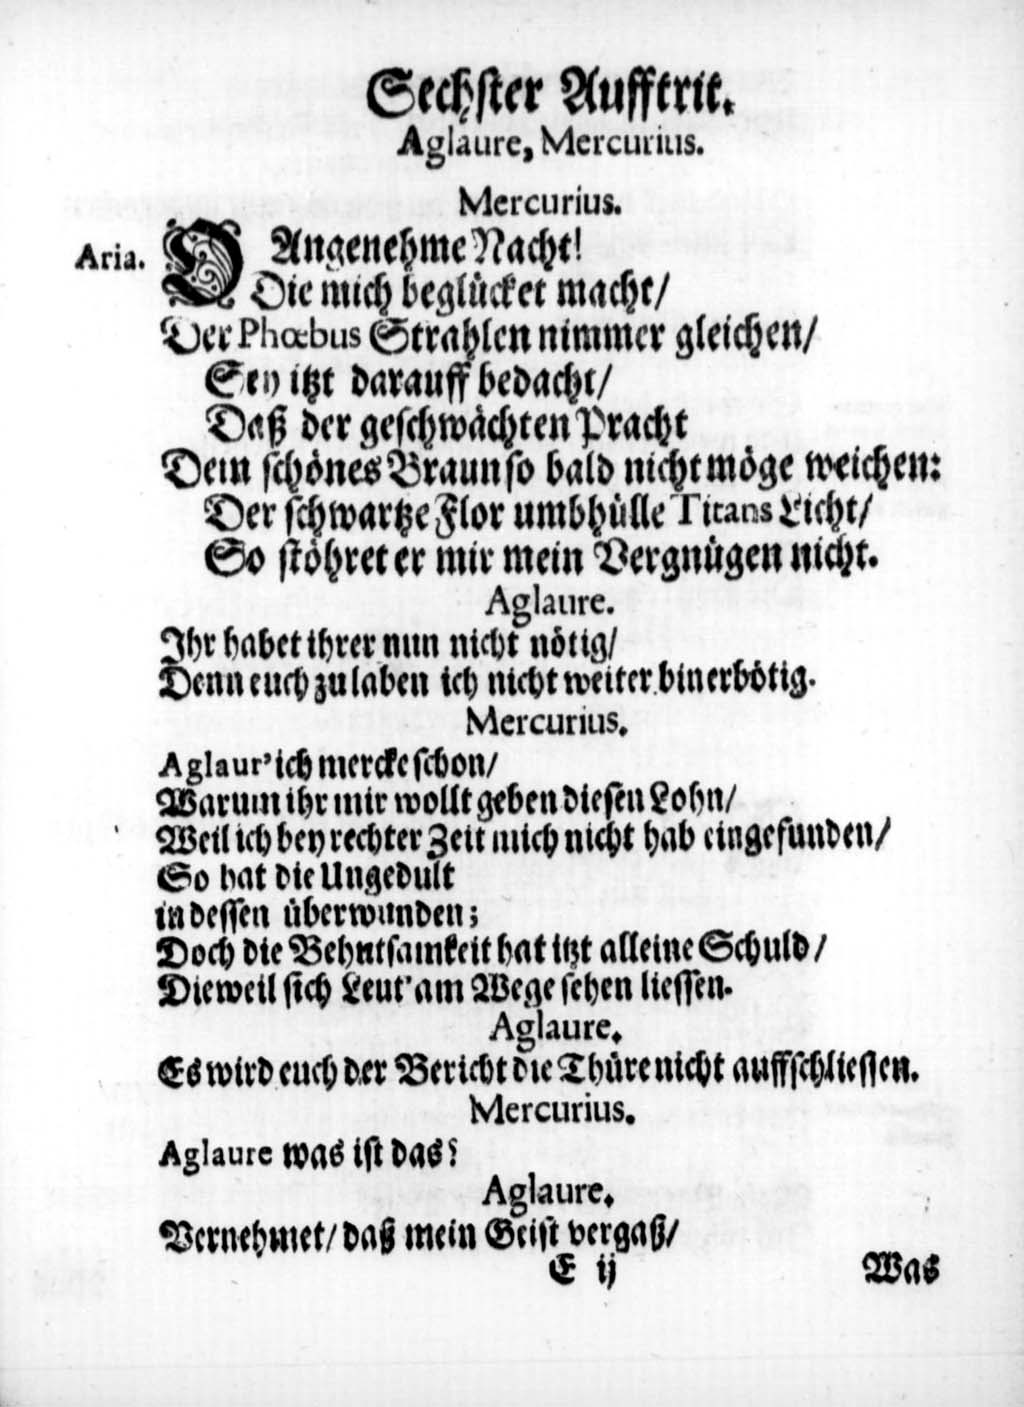 Sechster Aufftrit.
Aglaure, Mercurius.
Mercurius.
Aria. O Angenehme Nacht!
Die mich beglücket macht/
Der Phœbus Strahlen nimmer gleichen/
Sey itzt darauff bedacht/
Daß der geschwächten Pracht
Dein schönes Braun so bald nicht möge weichen:
Der schwartze Flor umbhülle Titans Licht/
So stöhret er mir mein Vergnügen nicht.
Aglaure.
Ihr habet ihrer nun nicht nötig/
Denn euch zu laben ich nicht weiter bin erbötig.
Mercurius.
Aglaur' ich mercke schon/
Warum ihr mir wollt geben diesen Lohn/
Weil ich bey rechter Zeit mich nicht hab eingefunden/
So hat die Ungedult
in dessen überwunden;
Doch die Behutsamkeit hat itzt alleine Schuld/
Dieweil sich Leut' am Wege sehen liessen.
Aglaure.
Es wird euch der Bericht die Thüre nicht auffschliessen.
Mercurius.
Aglaure was ist das?
Aglaure.
Vernehmet/ daß mein Geist vergaß/
E ij Was